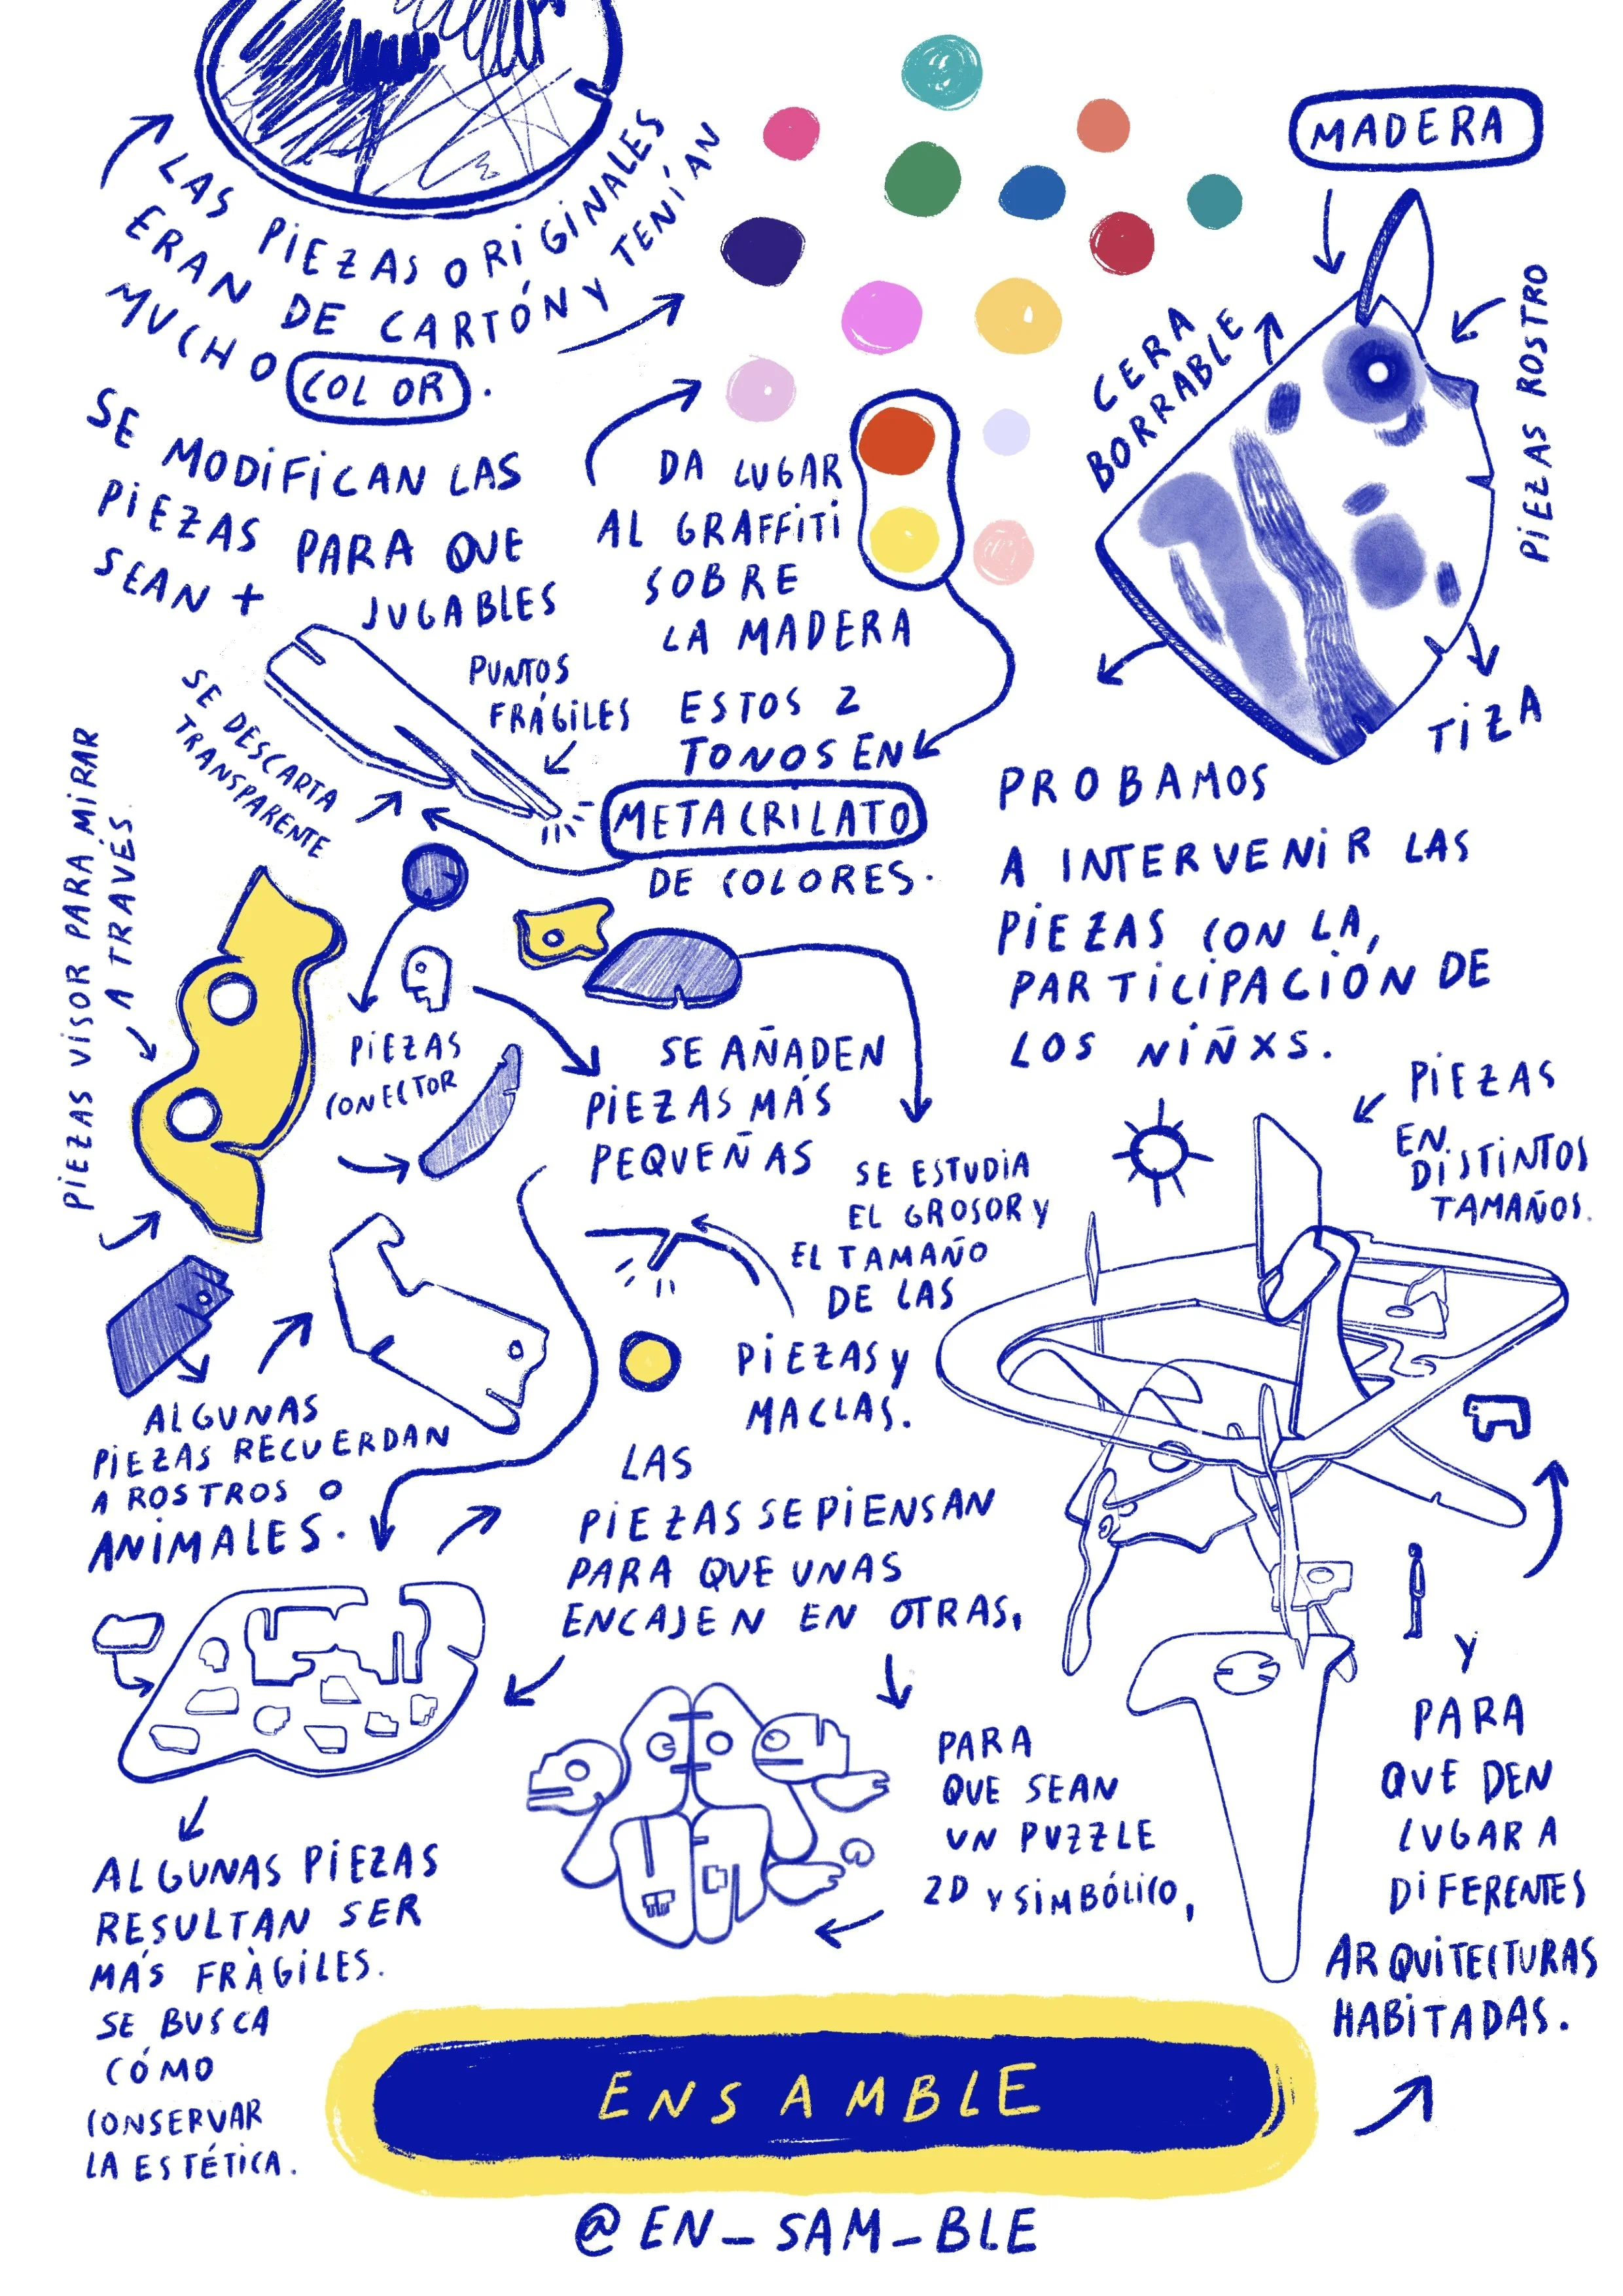 LAS PIEZAS ORIGINALES
ERAN DE CARTÓN Y TENÍAN
MUCHO COLOR.
SE MODIFICAN LAS
PIEZAS PARA QUE
SEAN + JUGABLES
DA LUGAR
AL GRAFFITI
SOBRE
LA MADERA
ESTOS 2
TONOS EN
METACRILATO
DE COLORES.
PUNTOS
FRÁGILES
SE DESCARTA
TRANSPARENTE
MADERA
CERA
BORRABLE
PIEZAS ROSTRO
TIZA
PROBAMOS
A INTERVENIR LAS
PIEZAS CON LA,
PARTICIPACIÓN DE
LOS NIÑXS.
PIEZAS VISOR PARA MIRAR
A TRAVÉS.
PIEZAS
CONECTOR
SE AÑADEN
PIEZAS MÁS
PEQUEÑAS
SE ESTUDIA
EL GROSOR Y
EL TAMAÑO
DE LAS
PIEZAS Y
MACLAS.
PIEZAS
EN
DISTINTOS
TAMAÑOS.
ALGUNAS
PIEZAS RECUERDAN
A ROSTROS O
ANIMALES.
LAS
PIEZAS SE PIENSAN
PARA QUE UNAS
ENCAJEN EN OTRAS,
PARA
QUE SEAN
UN PUZZLE
2D Y SIMBÓLICO,
Y
PARA
QUE DEN
LUGAR A
DIFERENTES
ARQUITECTURAS
HABITADAS.
ALGUNAS PIEZAS
RESULTAN SER
MÁS FRÀGILES.
SE BUSCA
CÓMO
CONSERVAR
LA ESTÉTICA.
ENSAMBLE
@EN_SAM_BLE